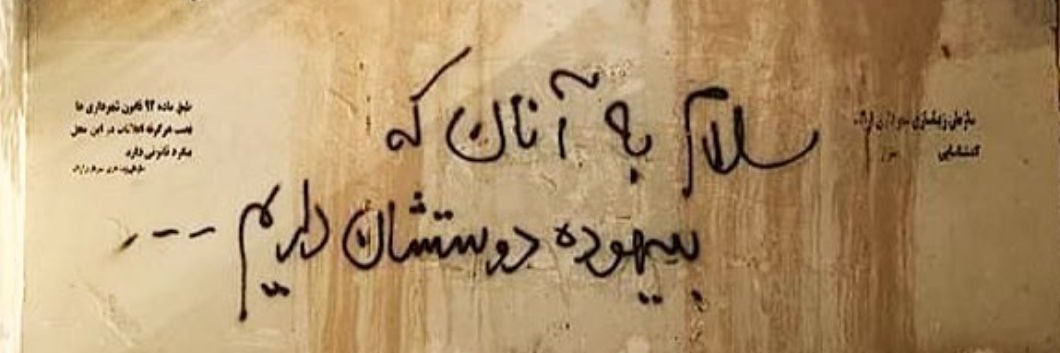 سلام به آنان که
بیهوده دوستشان داریم ---
طبق ماده ۹۲ قانون شهرداری ها
نصب هرگونه اعلانات در این محل
پیگرد قانونی دارد
سازمان زیباسازی شهرداری اراک